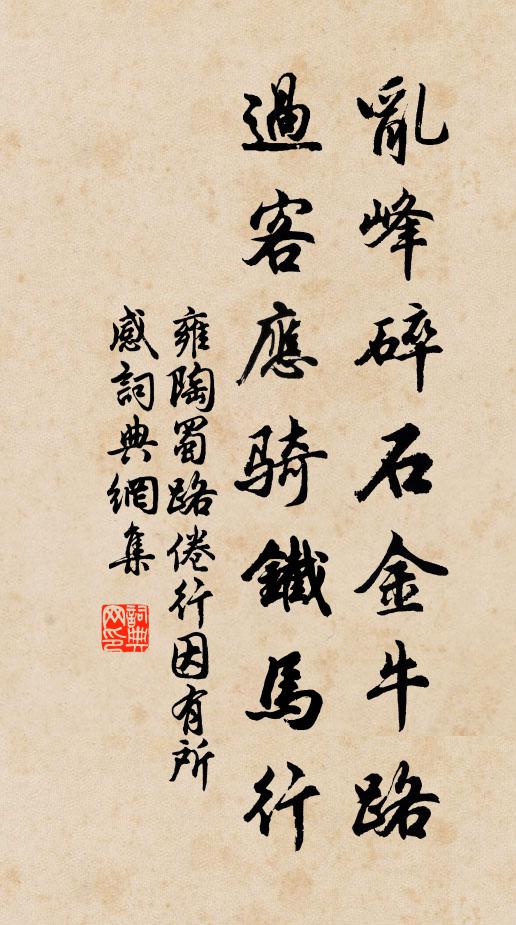 亂峰碎石金牛路
過客應騎鐵馬行
雍陶蜀路倦行因有所
感詞典網集
詞典网印